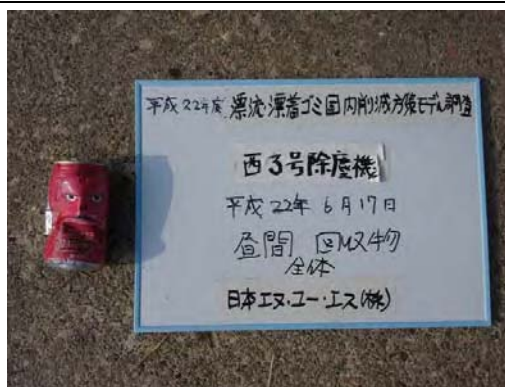 平成22年度 漂流・漂着ゴミ国内削減方策モデル調査
西3号除塵機
平成22年6月17日
昼間 回収物
全体
日本エヌ・ユー・エス(株)